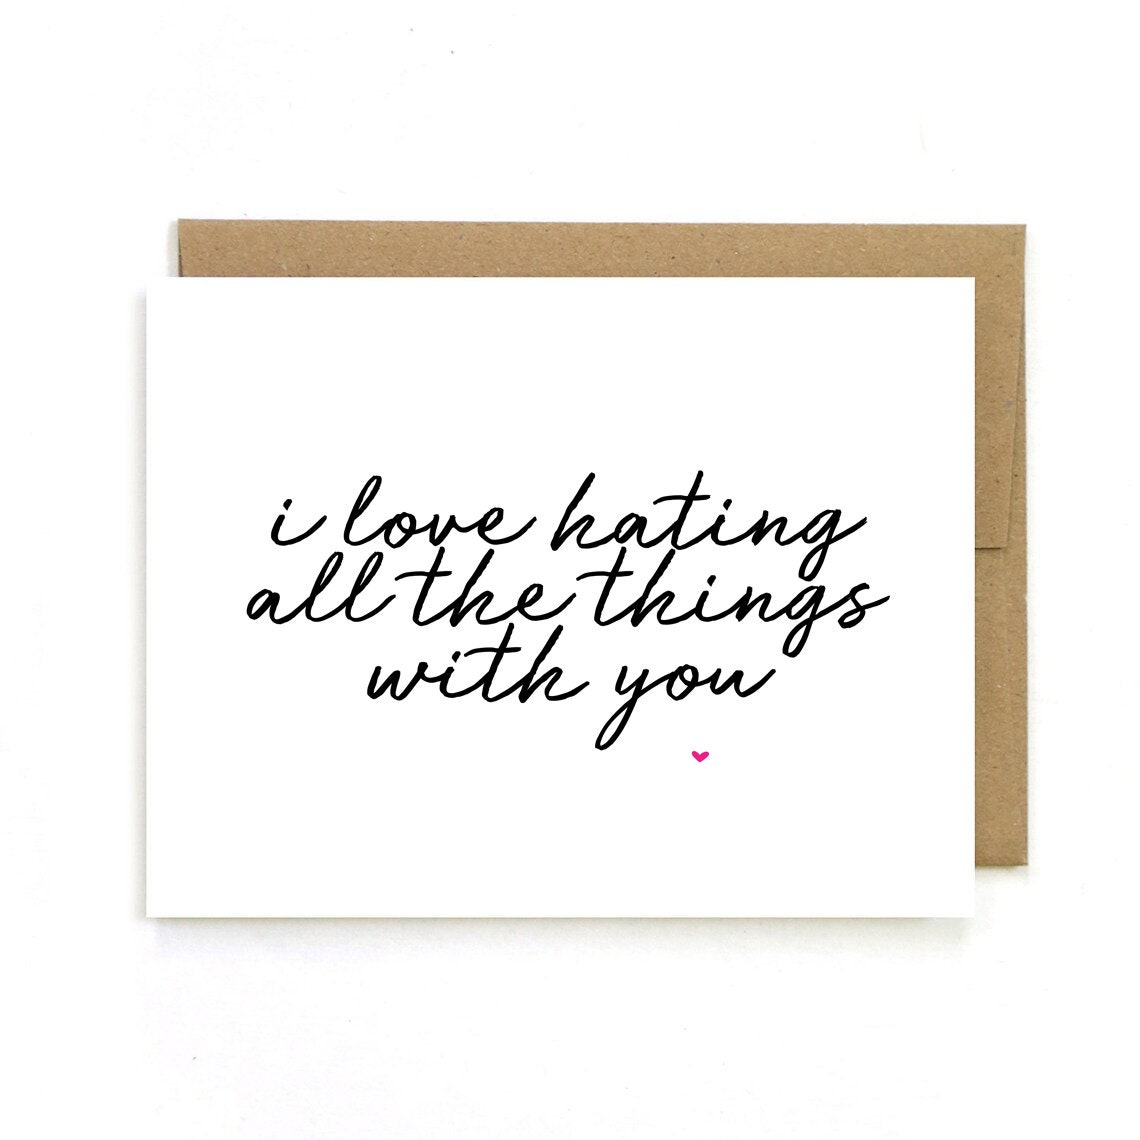 i love hating
all the things
with you